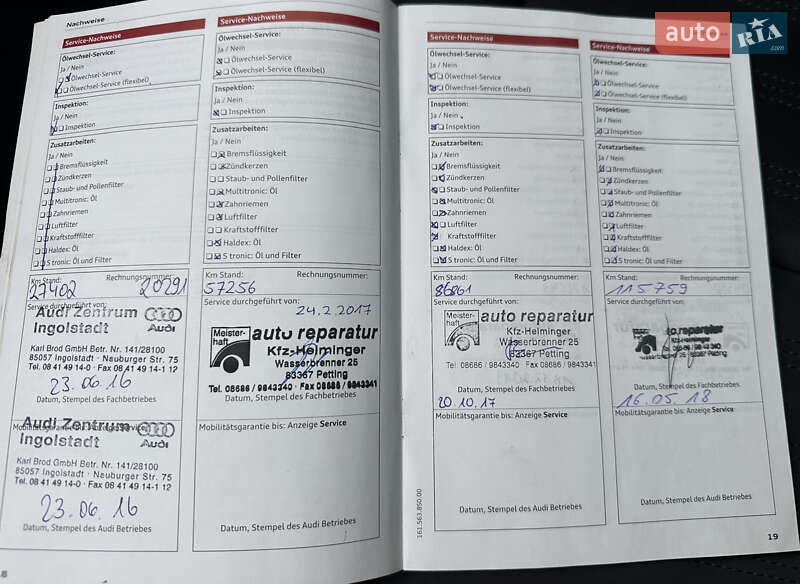 Nachweise
Service-Nachweise
Ölwechsel-Service:
Ja / Nein
Ölwechsel-Service
Ölwechsel-Service (flexibel)
Inspektion:
Ja / Nein
Inspektion
Zusatzarbeiten:
Ja / Nein
Bremsflüssigkeit
Zündkerzen
Staub- und Pollenfilter
Multitronic: Öl
Zahnriemen
Luftfilter
Kraftstofffilter
Haldex: Öl
S tronic: Öl und Filter
Km Stand: Rechnungsnummer:
27402 20291
Service durchgeführt von:
Audi Zentrum
Ingolstadt Audi
Karl Brod GmbH Betr. Nr. 141/28100
85057 Ingolstadt · Neuburger Str. 75
Tel. 08 41 49 14-0 · Fax 08 41 49 14-1 12
23.06.16
Datum, Stempel des Fachbetriebes
Audi Zentrum
Ingolstadt Audi
Karl Brod GmbH Betr. Nr. 141/28100
85057 Ingolstadt · Neuburger Str. 75
Tel. 08 41 49 14-0 · Fax 08 41 49 14-1 12
23.06.16
Datum, Stempel des Audi Betriebes
Service-Nachweise
Ölwechsel-Service:
Ja / Nein
Ölwechsel-Service
Ölwechsel-Service (flexibel)
Inspektion:
Ja / Nein
Inspektion
Zusatzarbeiten:
Ja / Nein
Bremsflüssigkeit
Zündkerzen
Staub- und Pollenfilter
Multitronic: Öl
Zahnriemen
Luftfilter
Kraftstofffilter
Haldex: Öl
S tronic: Öl und Filter
Km Stand: Rechnungsnummer:
57256
Service durchgeführt von:
24.2.2017
Meister-
haft
auto reparatur
Kfz-Helminger
Wasserbrenner 25
83367 Petting
Tel. 08686 / 9843340 · Fax 08686 / 9843341
Datum, Stempel des Fachbetriebes
Mobilitätsgarantie bis: Anzeige Service
Datum, Stempel des Audi Betriebes
Service-Nachweise
Ölwechsel-Service:
Ja / Nein
Ölwechsel-Service
Ölwechsel-Service (flexibel)
Inspektion:
Ja / Nein
Inspektion
Zusatzarbeiten:
Ja / Nein
Bremsflüssigkeit
Zündkerzen
Staub- und Pollenfilter
Multitronic: Öl
Zahnriemen
Luftfilter
Kraftstofffilter
Haldex: Öl
S tronic: Öl und Filter
Km Stand: Rechnungsnummer:
86861
Service durchgeführt von:
Meister-
haft
auto reparatur
Kfz-Helminger
Wasserbrenner 25
83367 Petting
Tel. 08686 / 9843340 · Fax 08686 / 9843341
Datum, Stempel des Fachbetriebes
20.10.17
Mobilitätsgarantie bis: Anzeige Service
Datum, Stempel des Audi Betriebes
161.563.850.00
Service-Nachweise
Ölwechsel-Service:
Ja / Nein
Ölwechsel-Service
Ölwechsel-Service (flexibel)
Inspektion:
Ja / Nein
Inspektion
Zusatzarbeiten:
Ja / Nein
Bremsflüssigkeit
Zündkerzen
Staub- und Pollenfilter
Multitronic: Öl
Zahnriemen
Luftfilter
Kraftstofffilter
Haldex: Öl
S tronic: Öl und Filter
Km Stand: Rechnungsnummer:
115759
Service durchgeführt von:
reparatur
Petting
Datum, Stempel des Fachbetriebes
16.05.18
Mobilitätsgarantie bis: Anzeige Service
Datum, Stempel des Audi Betriebes
19
auto RIA
.com